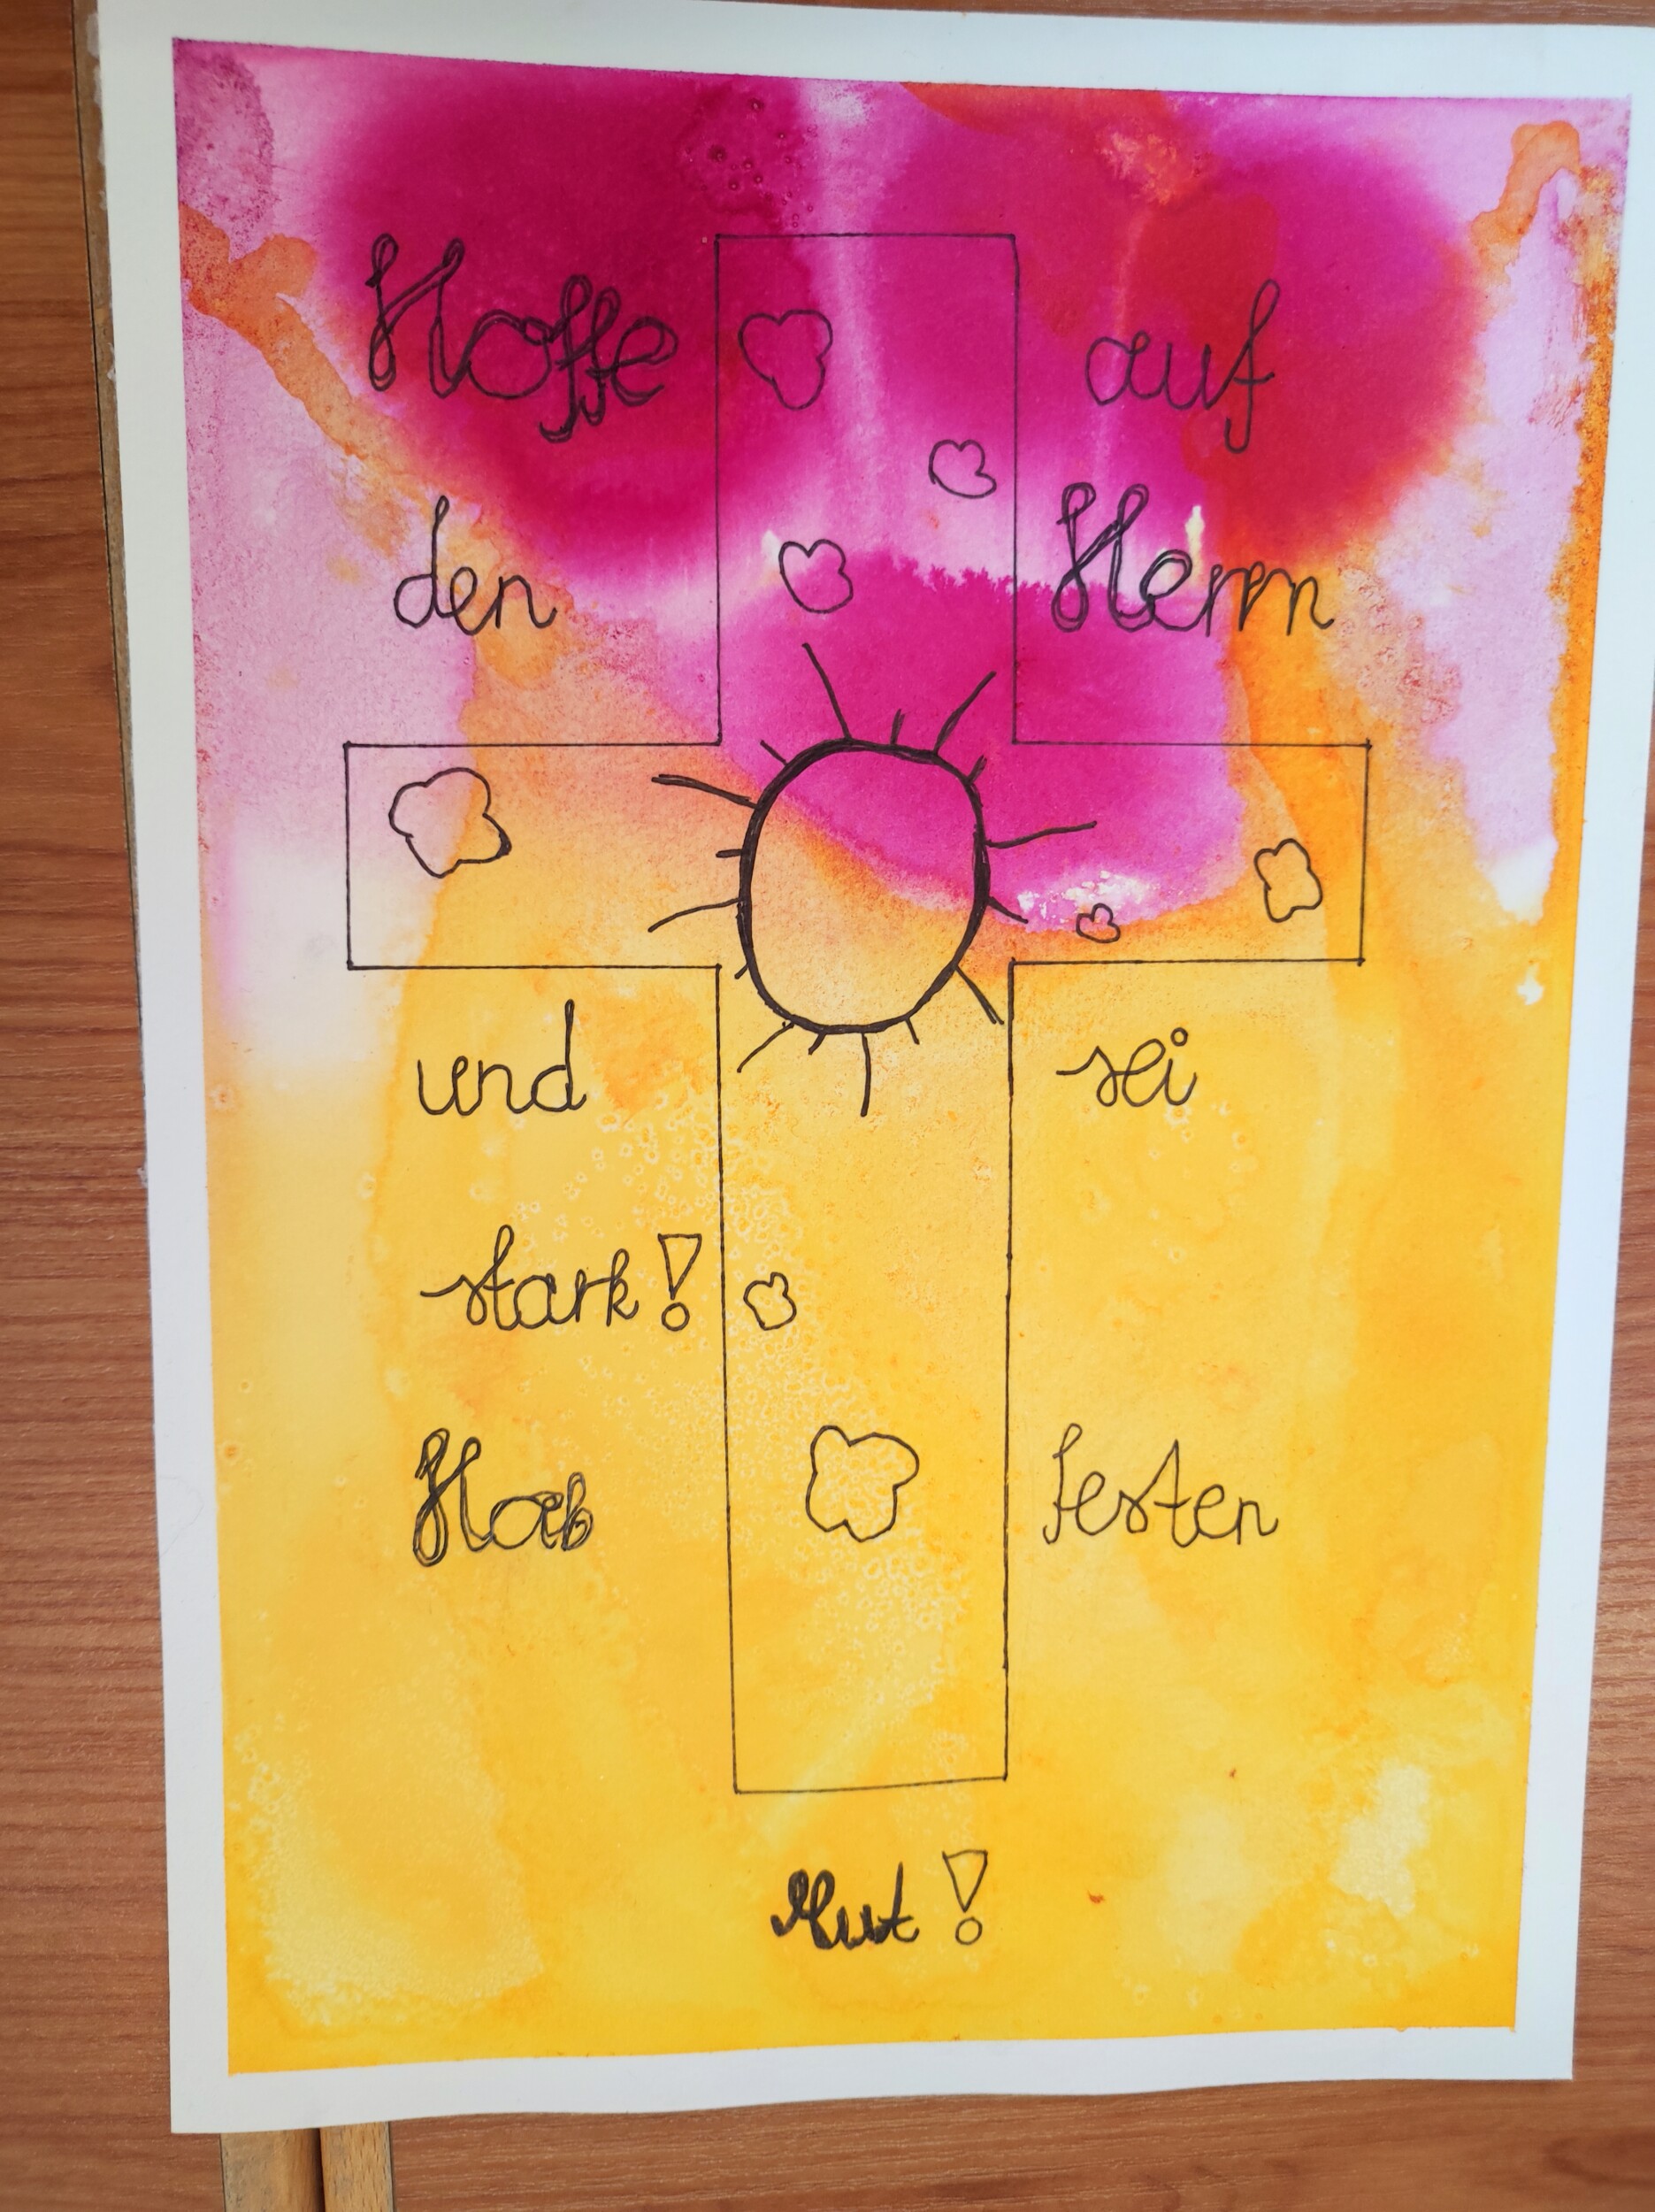 Hoffe auf
den Herrn
und sei
stark!
Hab festen
Mut!